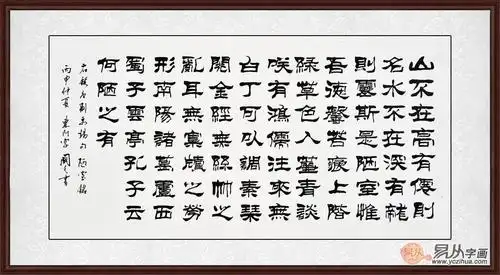 山不在高有僊則
名水不在深有龍
則靈斯是陋室惟
吾德馨苔痕上階
綠草色入簾青談
咲有鴻儒往來無
白丁可以調素琴
閱金經無絲竹之
亂耳無案牘之勞
形南陽諸葛廬西
蜀子雲亭孔子云
何陋之有
陋室銘
丙申仲夏
易从字画
www.yczihua.com